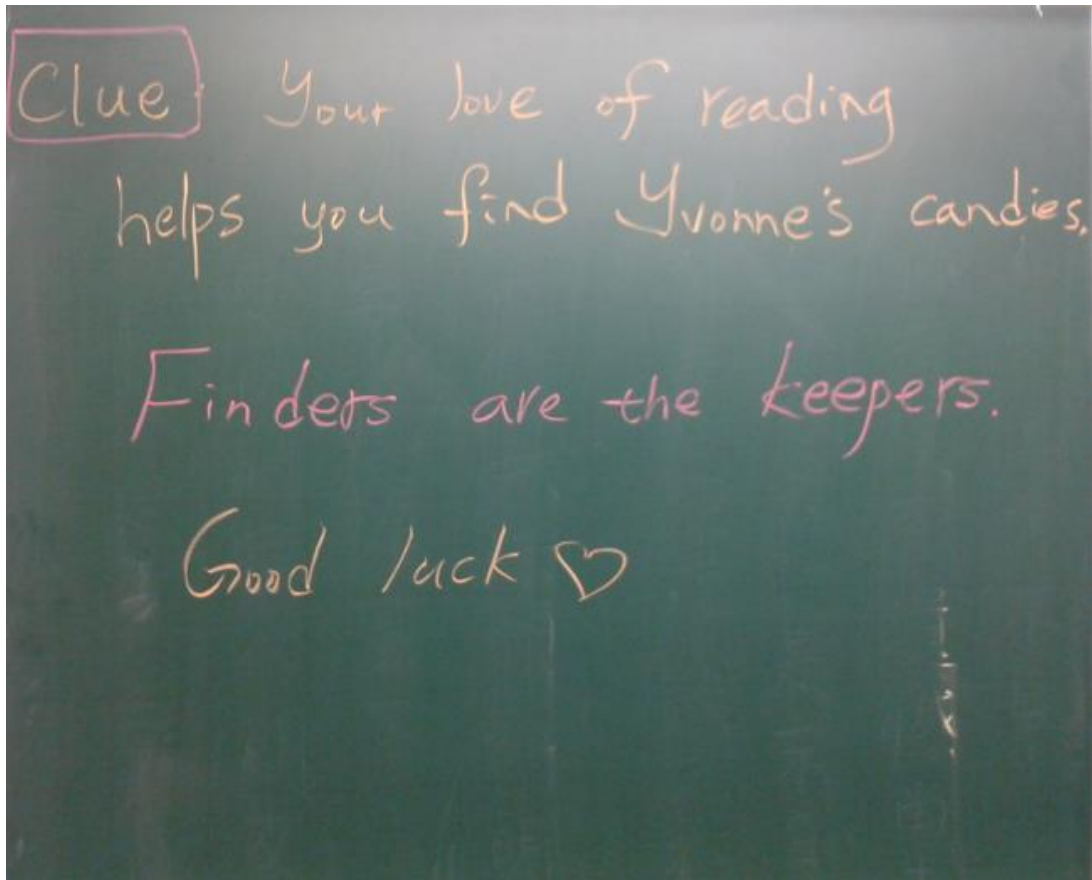 Clue: Your love of reading
helps you find Yvonne's candies.
Finders are the keepers.
Good luck ♡